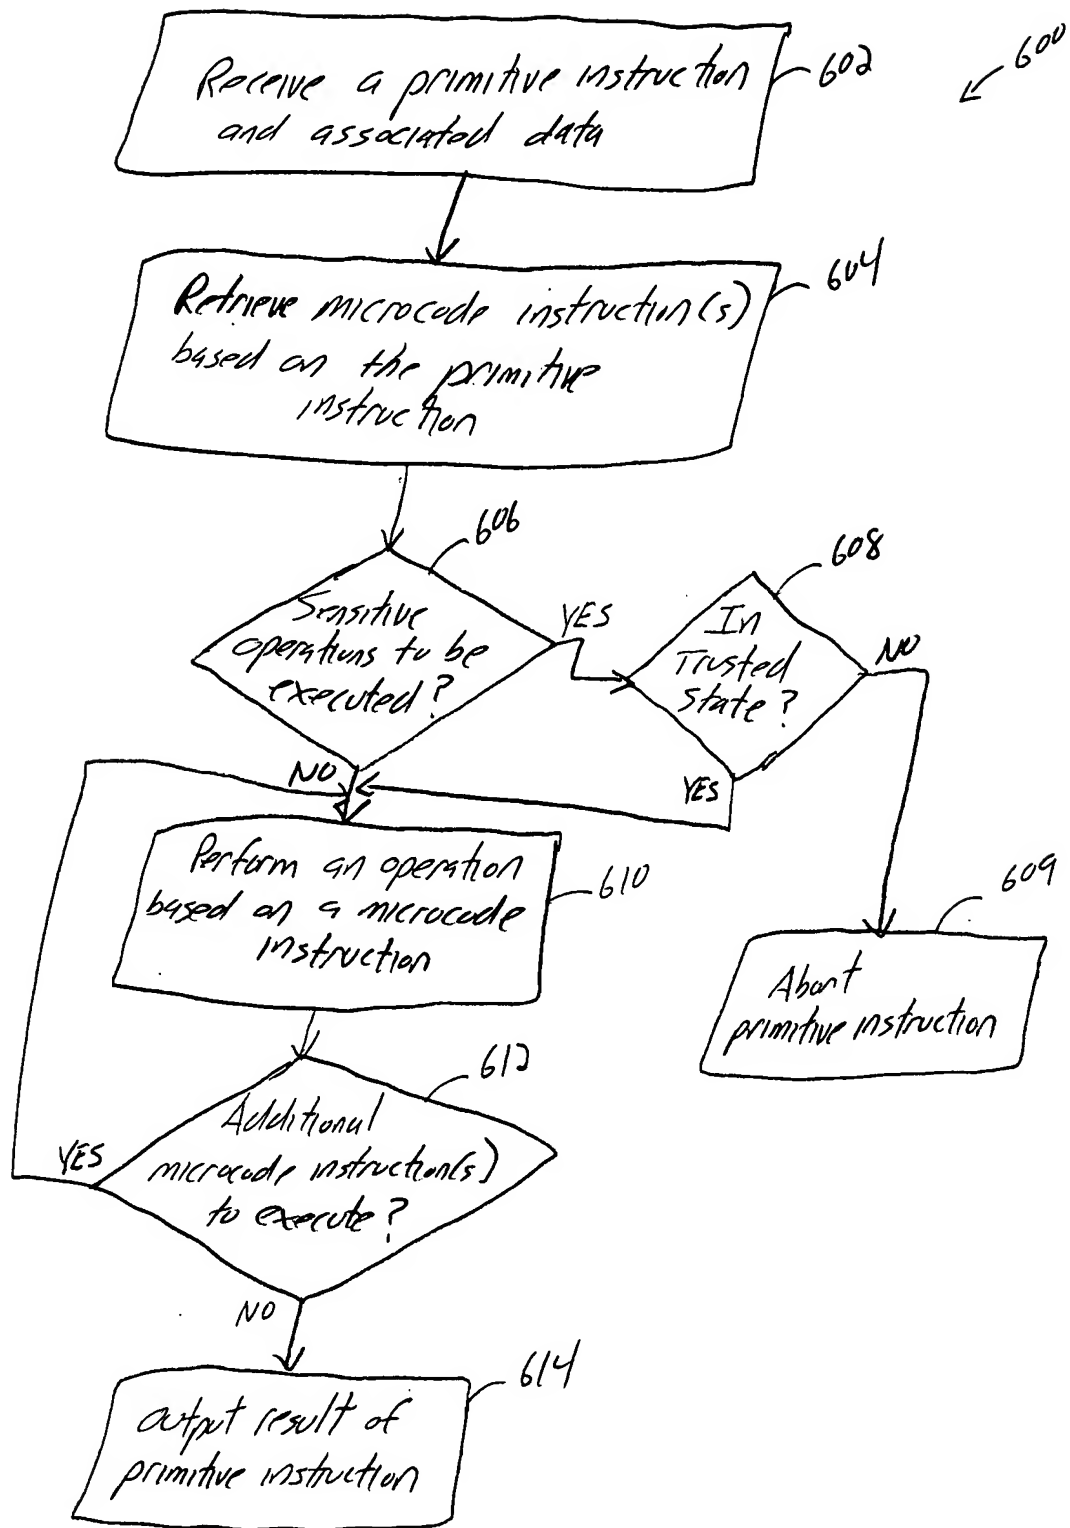 600
Receive a primitive instruction
and associated data
602
Retrieve microcode instruction(s)
based on the primitive
instruction
604
Sensitive
operations to be
executed?
606
YES
NO
In
Trusted
state?
608
NO
YES
Perform an operation
based on a microcode
instruction
610
Abort
primitive instruction
609
Additional
microcode instruction(s)
to execute?
612
YES
NO
output result of
primitive instruction
614